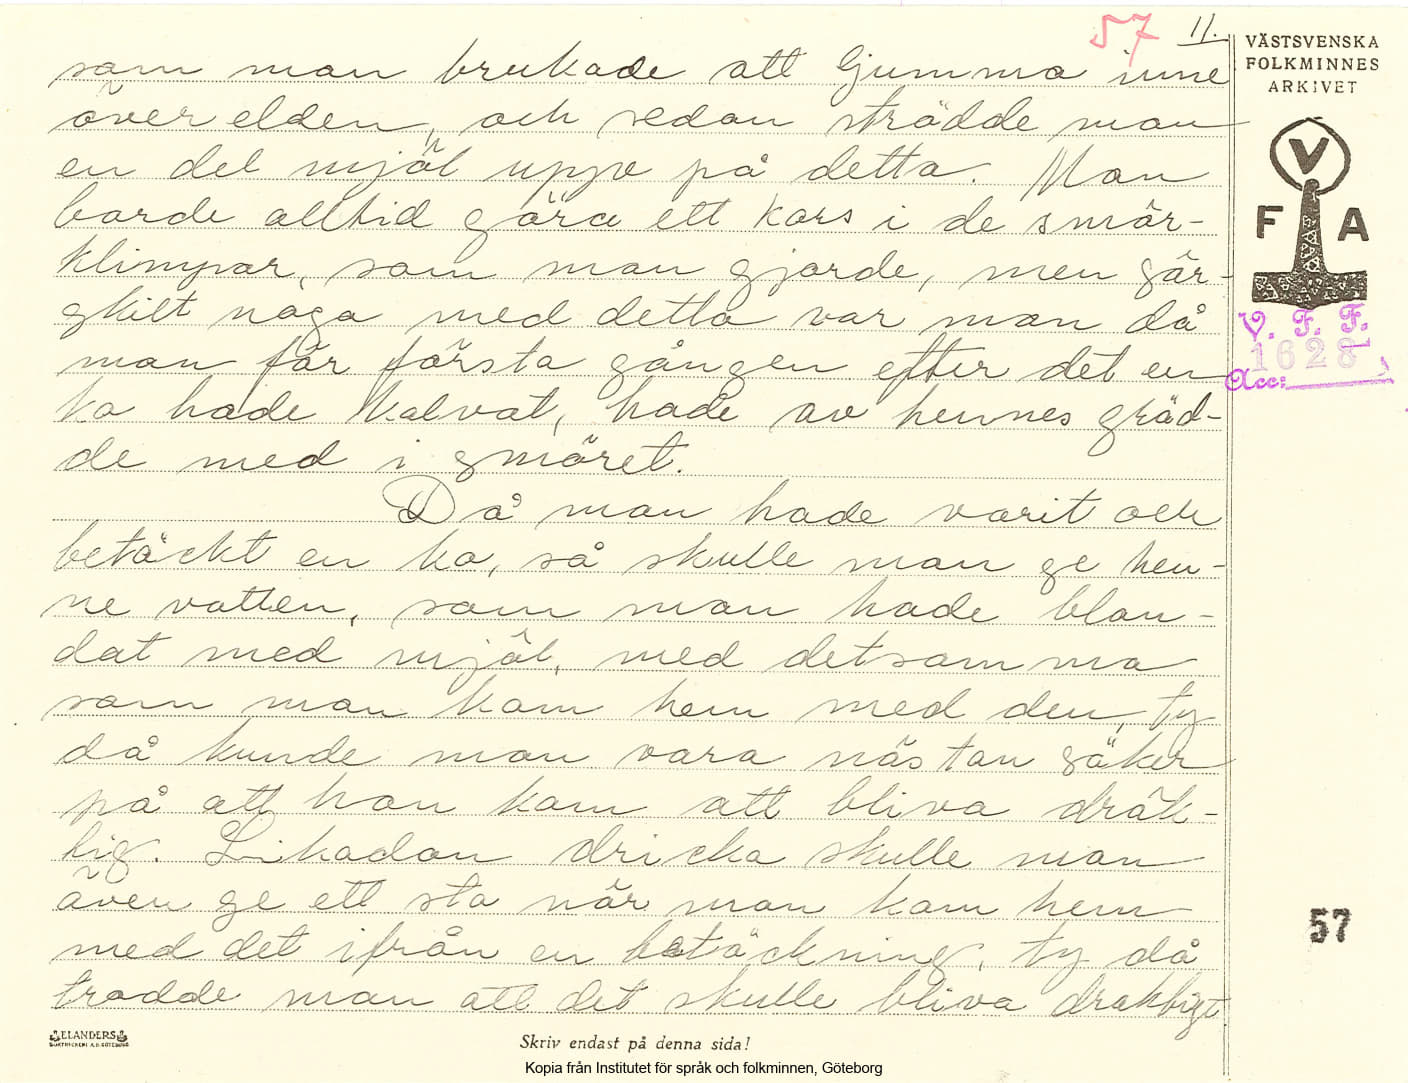 57 11.
VÄSTSVENSKA
FOLKMINNES
ARKIVET
V
F A
V. F. F.
1628
Acc:
som man brukade att gumma inne
över elden, och sedan strödde man
en del mjöl uppe på detta. Man
borde alltid göra ett kors i de smör-
klimpar, som man gjorde, men sär-
skilt noga med detta var man då
man för första gången efter det en
ko hade kalvat, hade av hennes gräd-
de med i smöret.
Då man hade varit och
betäckt en ko, så skulle man ge hen-
ne vatten, som man hade blan-
dat med mjöl, med detsamma
som man kom hem med den, ty
då kunde man vara nästan säker
på att hon kom att bliva dräk-
tig. Likadan dricka skulle man
även ge ett sto när man kom hem
med det ifrån en betäckning, ty då
trodde man att det skulle bliva dräktigt
57
ELANDERS
BOKTRYCKERI A.B. GÖTEBORG
Skriv endast på denna sida!
Kopia från Institutet för språk och folkminnen, Göteborg